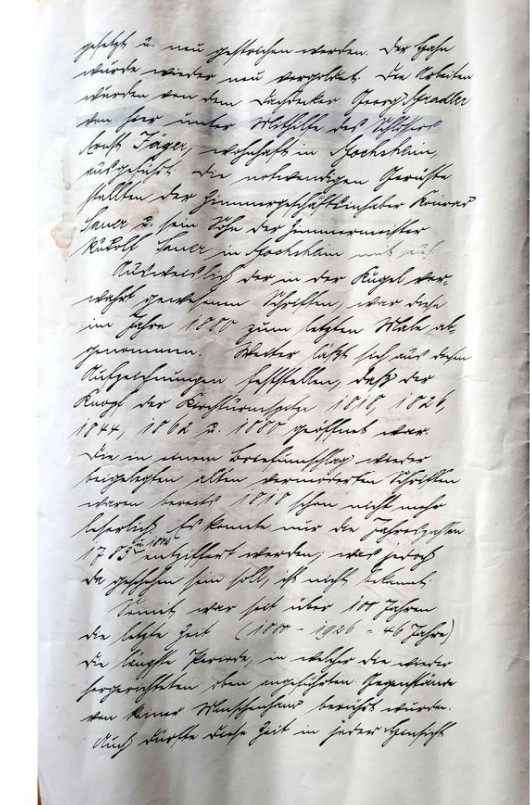 gesetzt u. neu gestrichen werden. Der Hahn
wurde wieder neu vergoldet. Die Arbeiten
wurden von dem Dachdecker Georg Stradler
von hier unter Mithilfe des Schlossers
Ernst Jäger, wohnhaft in
ausgeführt. Die notwendigen Gerüste
stellten der Zimmergeschäftsinhaber Konrad
Sauer u. sein Sohn der Zimmermeister
Rudolf Sauer in mit auf.
Ausweislich der in der Kugel ver-
wahrt gewesenen Schriften, war diese
im Jahre 1880 zum letzten Male ab-
genommen. Weiter läßt sich aus diesen
Aufzeichnungen feststellen, daß der
Knopf der Kirchturmspitze 1818, 1826,
1844, 1862 u. 1880 geöffnet war.
Die in einem Briefumschlag wieder
beigelegten alten vermoderten Schriften
waren bereits 1818 schon nicht mehr
leserlich. Es konnte nur die Jahreszahlen
1703 u. entziffert werden; was jedoch
da geschehen sein soll, ist nicht bekannt.
Somit war seit über 100 Jahren
die letzte Zeit (1880 - 1926 = 46 Jahre)
die längste Periode, in welcher die wieder
hergerichteten oben angeführten Gegenstände
von keiner Menschenhand berührt wurden.
Auch dürfte diese Zeit in jeder Hinsicht